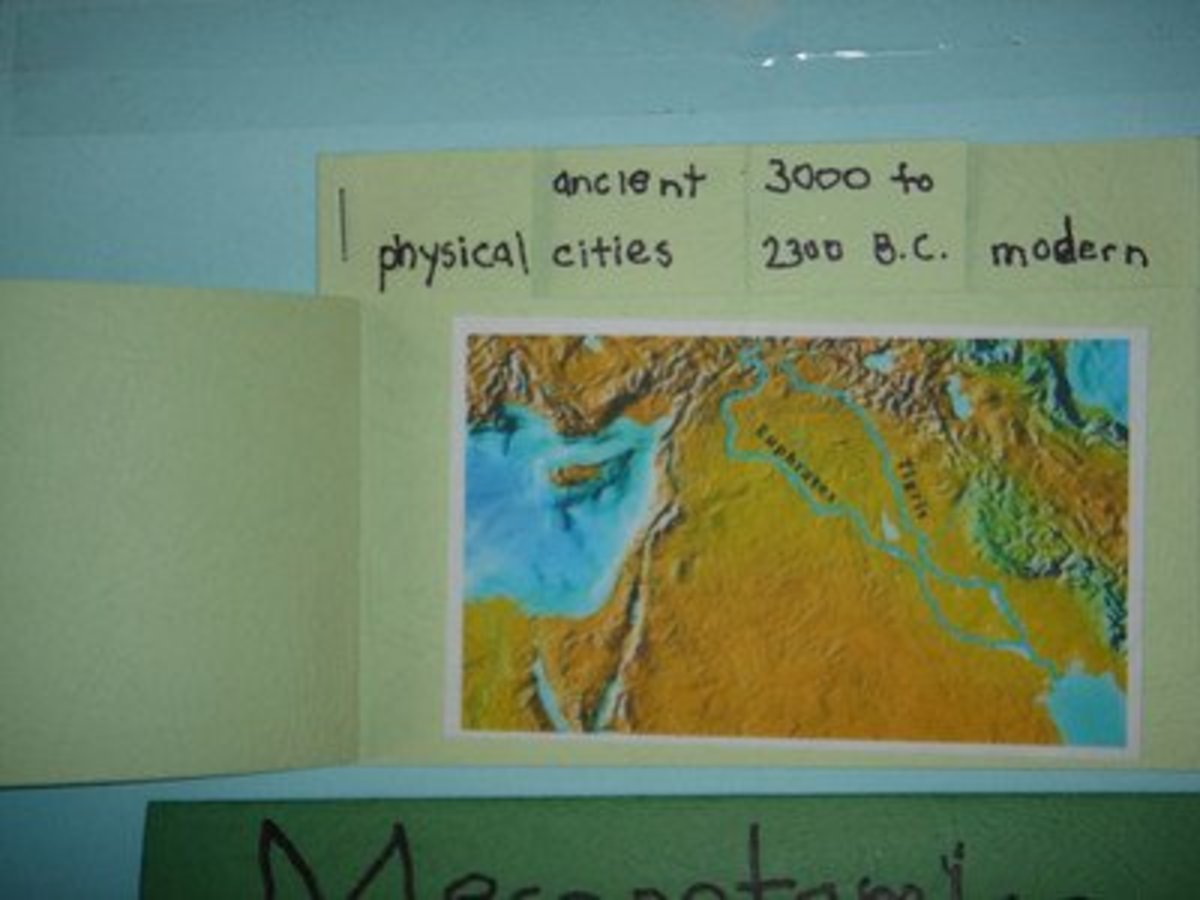 ancient 3000 to
physical cities 2300 B.C. modern
Euphrates
Tigris
Mesopotamia